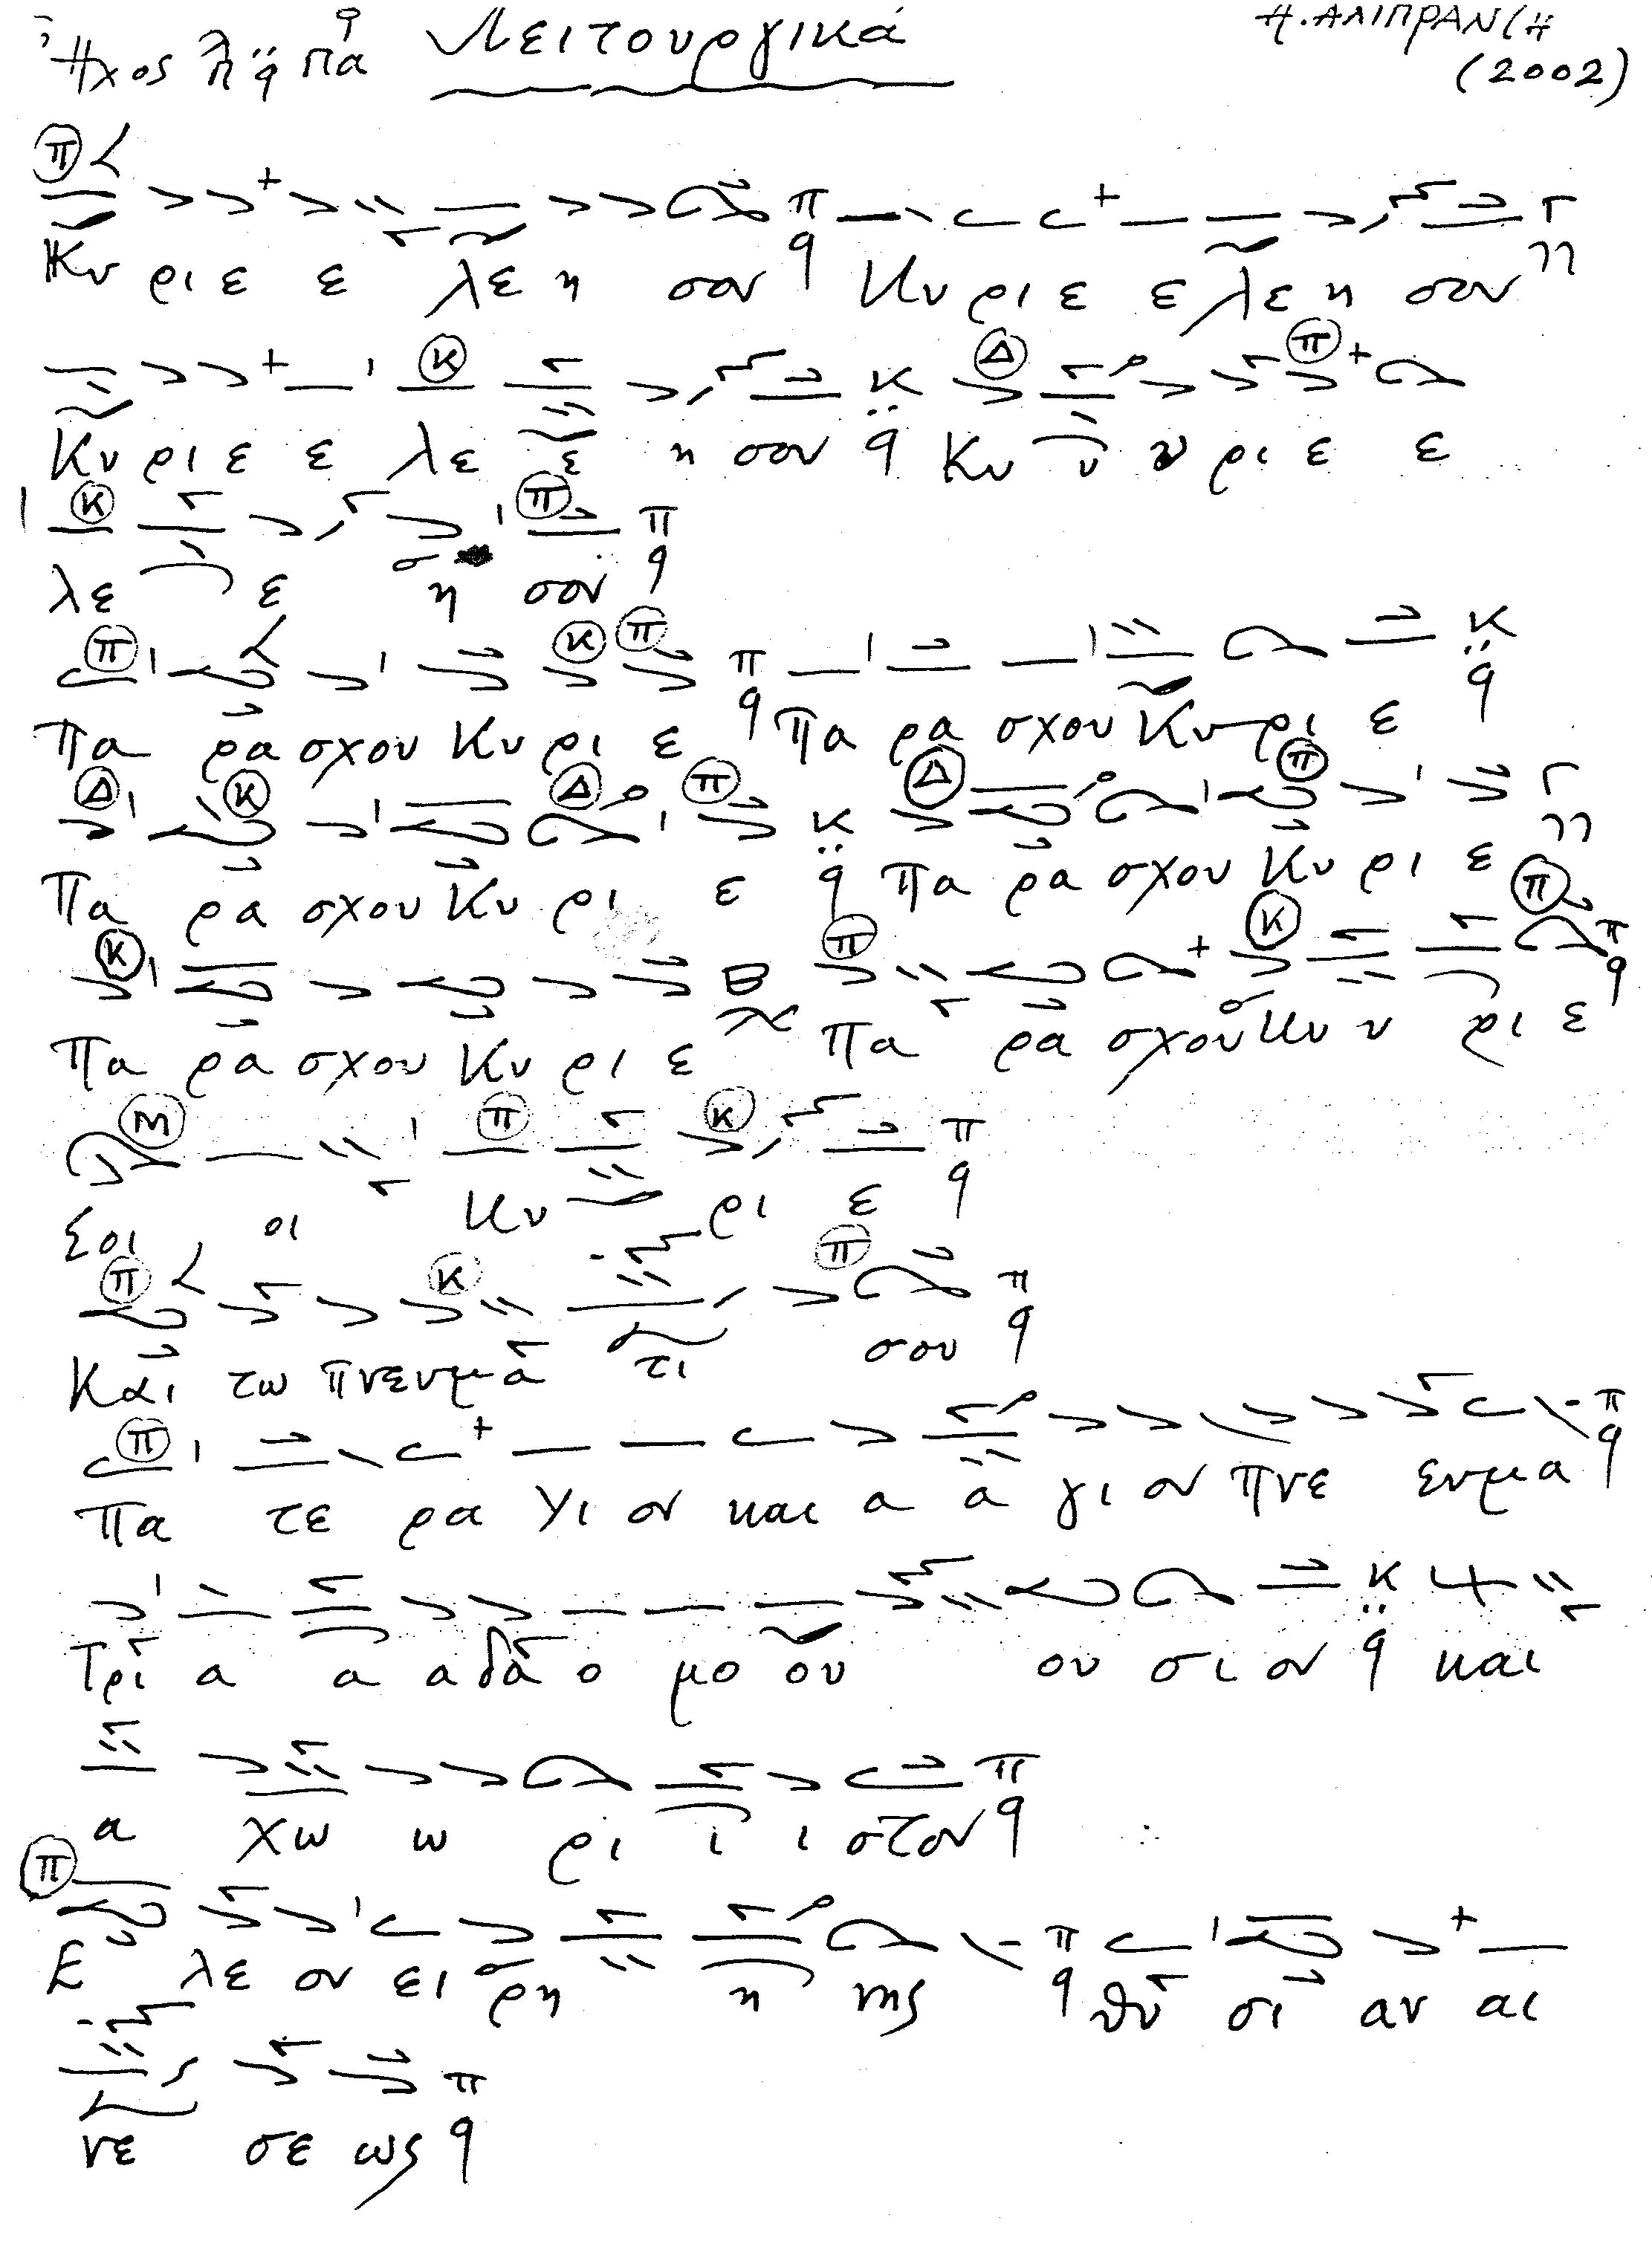 Ἦχος λ π ̈q Πα Λειτουργικά Η. ΑΛΙΠΡΑΝΤΗ
(2002)
Κυ ρι ε ε λε η σον Κυ ρι ε ε λε η σον
Κυ ρι ε ε λε ε η σον Κυ υ υ ρι ε ε
λε ε η σον
Πα ρα σχου Κυ ρι ε Πα ρα σχου Κυ ρι ε
Πα ρα σχου Κυ ρι ε Πα ρα σχου Κυ ρι ε
Πα ρα σχου Κυ ρι ε Πα ρα σχου Κυ υ ρι ε
Σοι οι Κυ ρι ε
Και τω πνευμα τι σου
Πα τε ρα Υι ον και α α γι ον Πνε ευμα
Τρι α α α δα ο μο ου ου σι ον και
α χω ω ρι ι ι στον
Ε λε ον ει ρη η νης θυ σι αν αι
νε σε ως